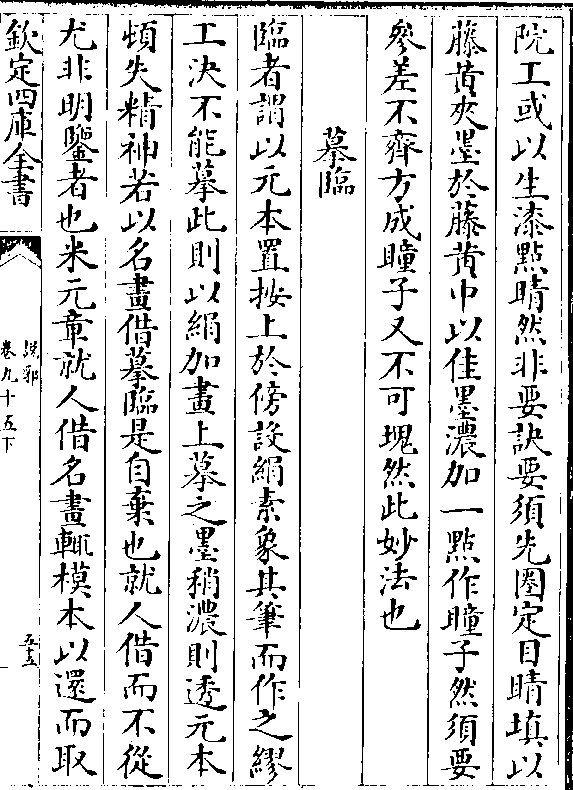 院工或以生漆點睛然非要訣要須先圈定目睛填以
藤黄夾墨於藤黄中以佳墨濃加一點作瞳子然須要
參差不齊方成瞳子又不可塊然此妙法也
摹臨
臨者謂以元本置按上於傍設絹素象其筆而作之繆
工決不能摹此則以絹加畫上摹之墨稍濃則透元本
頓失精神若以名畫借摹臨是自棄也就人借而不從
尤非明鑒者也米元章就人借名畫輒模本以還而取
欽定四庫全書
說郛
卷九十五下
五五